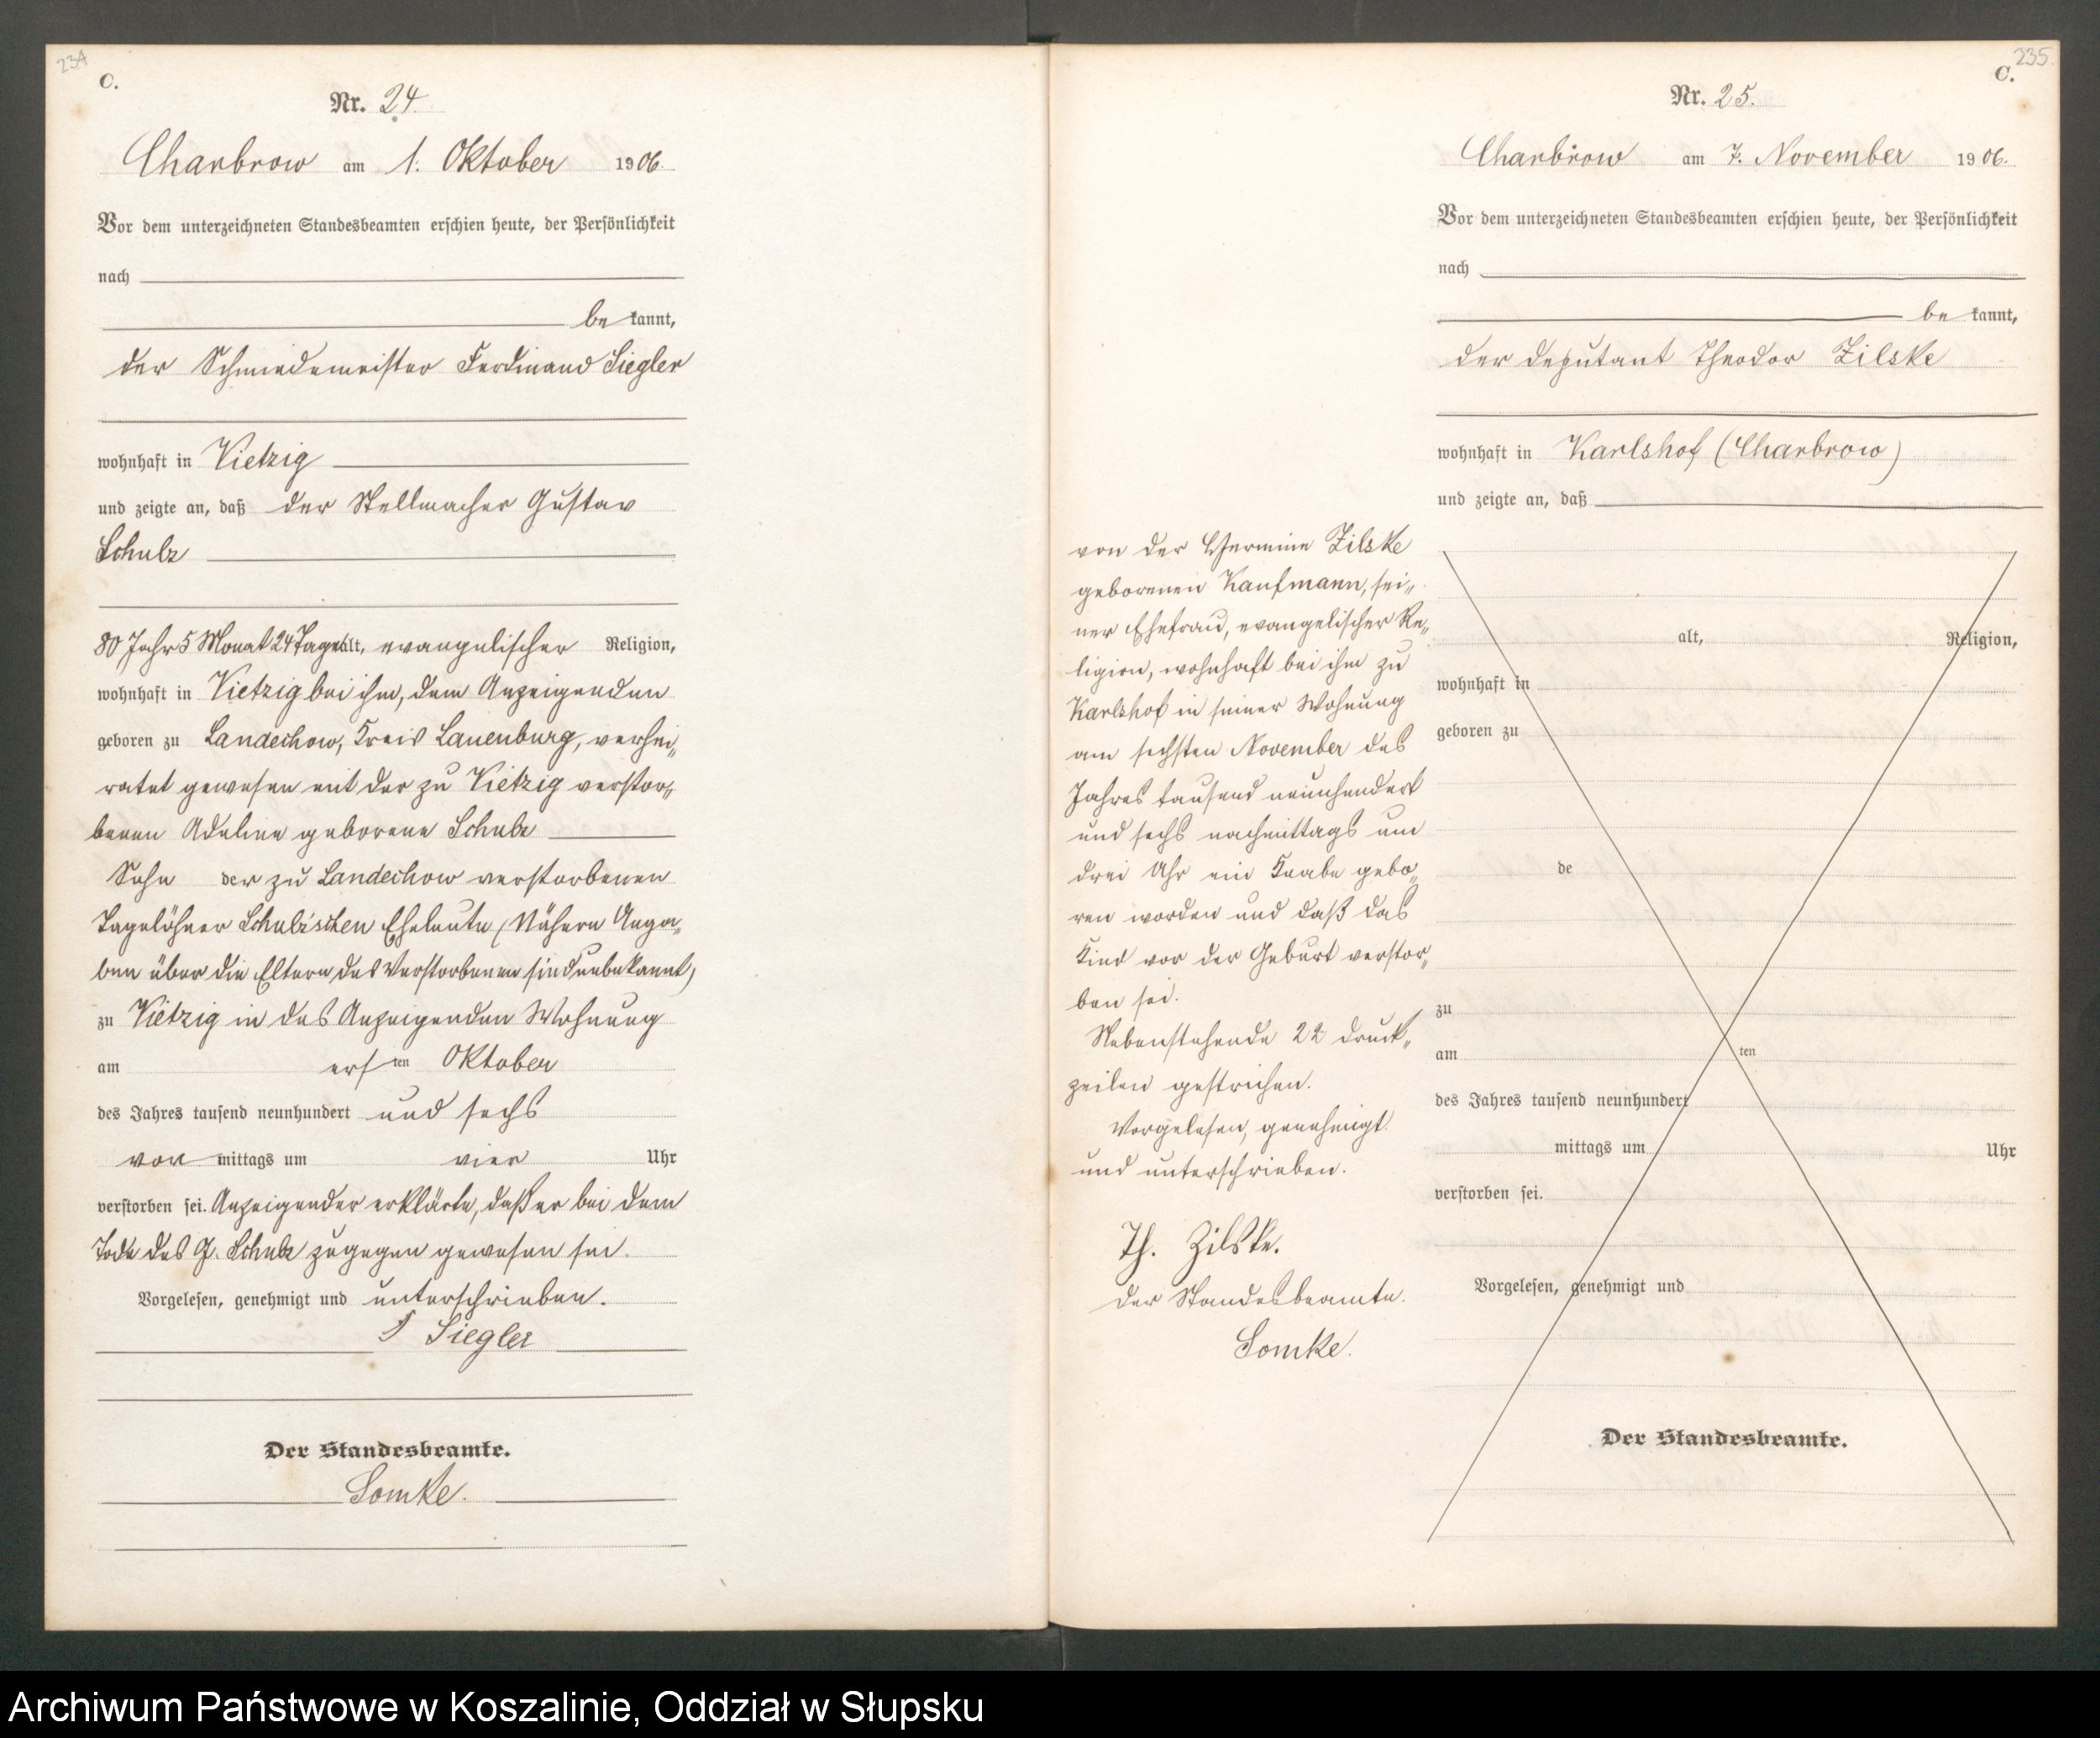 234
C.
Nr. 24.
Charbrow am 1. Oktober 1906.
Vor dem unterzeichneten Standesbeamten erschien heute, der Persönlichkeit
nach
be kannt,
der Schmiedemeister Ferdinand Siegler
wohnhaft in Vietzig
und zeigte an, daß der Stellmacher Gustav
Schulz
80 Jahr 5 Monat 24 Tage alt, evangelischer Religion,
wohnhaft in Vietzig bei ihm, dem Anzeigenden
geboren zu Landechow, Kreis Lauenburg, verhei„
ratet gewesen mit der zu Vietzig verstor„
benen Adeline geborene Schulz
Sohn der zu Landechow verstorbenen
Tagelöhner Schulz'schen Eheleute (Nähere Anga„
ben über die Eltern des Verstorbenen sind unbekannt)
zu Vietzig in des Anzeigenden Wohnung
am ersten Oktober
des Jahres tausend neunhundert und sechs
vor mittags um vier Uhr
verstorben sei. Anzeigender erklärte, daß er bei dem
Tode des G. Schulz zugegen gewesen sei.
Vorgelesen, genehmigt und unterschrieben.
F Siegler
Der Standesbeamte.
Somke.
235.
C.
Nr. 25.
Charbrow am 7. November 1906.
Vor dem unterzeichneten Standesbeamten erschien heute, der Persönlichkeit
nach
be kannt,
der Deputant Theodor Zilske
wohnhaft in Karlshof (Charbrow)
und zeigte an, daß
von der Hermine Zilske
geborenen Kaufmann, sei„
ner Ehefrau, evangelischer Re„
ligion, wohnhaft bei ihm zu
Karlshof in seiner Wohnung
am sechsten November des
Jahres tausend neunhundert
und sechs nachmittags um
drei Uhr ein Knabe gebo„
ren worden und daß das
Kind vor der Geburt verstor„
ben sei.
Nebenstehende 22 Druck„
zeilen gestrichen.
Vorgelesen, genehmigt
und unterschrieben.
Th. Zilske.
Der Standesbeamte.
Somke.
alt, Religion,
wohnhaft in
geboren zu
de
zu
am ten
des Jahres tausend neunhundert
mittags um Uhr
verstorben sei.
Vorgelesen, genehmigt und
Der Standesbeamte.
Archiwum Państwowe w Koszalinie, Oddział w Słupsku